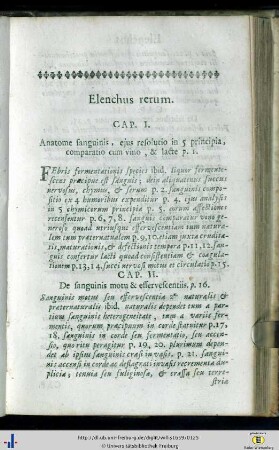 Elenchus rerum.
CAP. I.
Anatome sanguinis, ejus resolutio in 5 principia,
comparatio cum vino, & lacte p. 1.
FEbris fermentationis species ibid. liquor fermente-
scens præcipue est sanguis; dein aliquatenus succus
nervosus, chymus, & serum p. 2. sanguinis compo-
sitio ex 4 humoribus expenditur p. 4. ejus analysis
in 5 chymicorum principia p. 5. eorum affectiones
recensentur p. 6, 7, 8. sanguis comparatur vino ge-
neroso quoad utriusque effervescentiam tum natura-
lem tum præternaturalem p. 9, 10. etiam juxta crudita-
tis, maturationis, & defectionis tempora p. 11, 12. san-
guis confertur lacti quoad consistentiam & coagula-
tionem p. 13, 14. succi nervosi motus et circulatio p. 15.
CAP. II.
De sanguinis motu & effervescentiis. p. 16.
Sanguinis motus seu effervescentia est naturalis &
præternaturalis ibid. naturalis dependet tum a par-
tium sanguinis heterogeneitate, tam a variis fer-
mentis, quorum præcipuum in corde statuitur p. 17,
18. sanguinis in corde seu fermentatio, seu accen-
sio, quo ritu peragitur p. 19, 20. plurimum depen-
det ab ipsius sanguinis crasi invasis. p. 21. sangui-
nis accensi in corde ac deflagrati invasis recrementa du-
plicia; tenuia seu fuliginosa, & crassa seu terre-
stria
http://dl.ub.uni-freiburg.de/diglit/willis1659/0125
© Universitätsbibliothek Freiburg